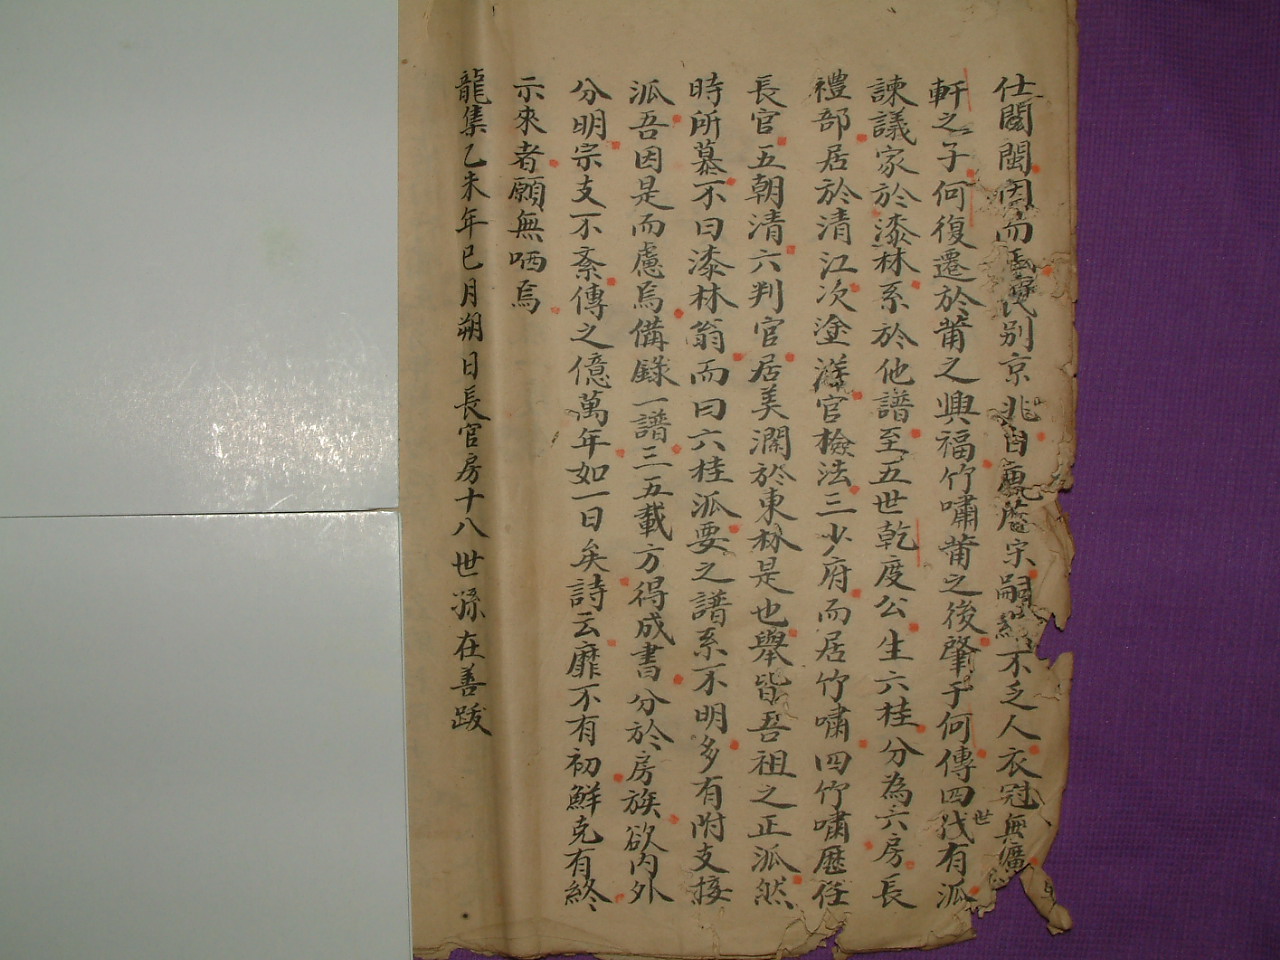 仕閩閩因而氏別京兆自鹿蘆宗嗣不乏人衣冠無
軒之子何復遷於莆之興福竹嘯莆之後肇于何傳四世代有派
諫議家於漆林系於他譜至五世乾度公生六桂分為六房長
禮部居於清江次塗洋官檢法三少府而居竹嘯四竹嘯歷任
長官五朝清六判官居美瀾於東林是也舉皆吾祖之正派然
時所慕不曰漆林翁而曰六桂派要之譜系不明多有附支接
派吾因是而慮焉備錄一譜三五載方得成書分於房族欲內外
分明宗支不紊傳之億萬年如一日矣詩云靡不有初鮮克有終
示來者願無哂焉
龍集乙未年巳月朔日長官房十八世孫在善跋